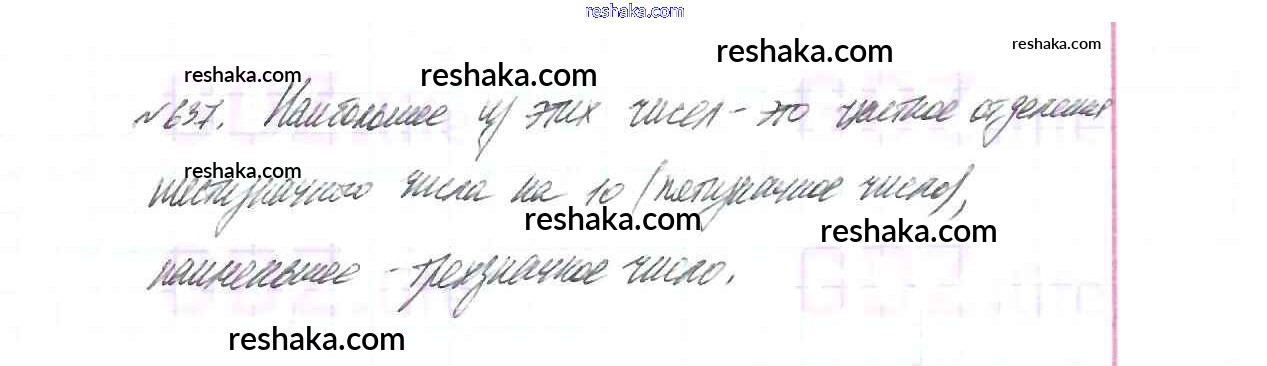 reshaka.com
reshaka.com reshaka.com reshaka.com reshaka.com
№637. Наибольшее из этих чисел - это частное от деления
reshaka.com
шестизначного числа на 10 (пятизначное число),
reshaka.com reshaka.com
наименьшее - трехзначное число.
reshaka.com